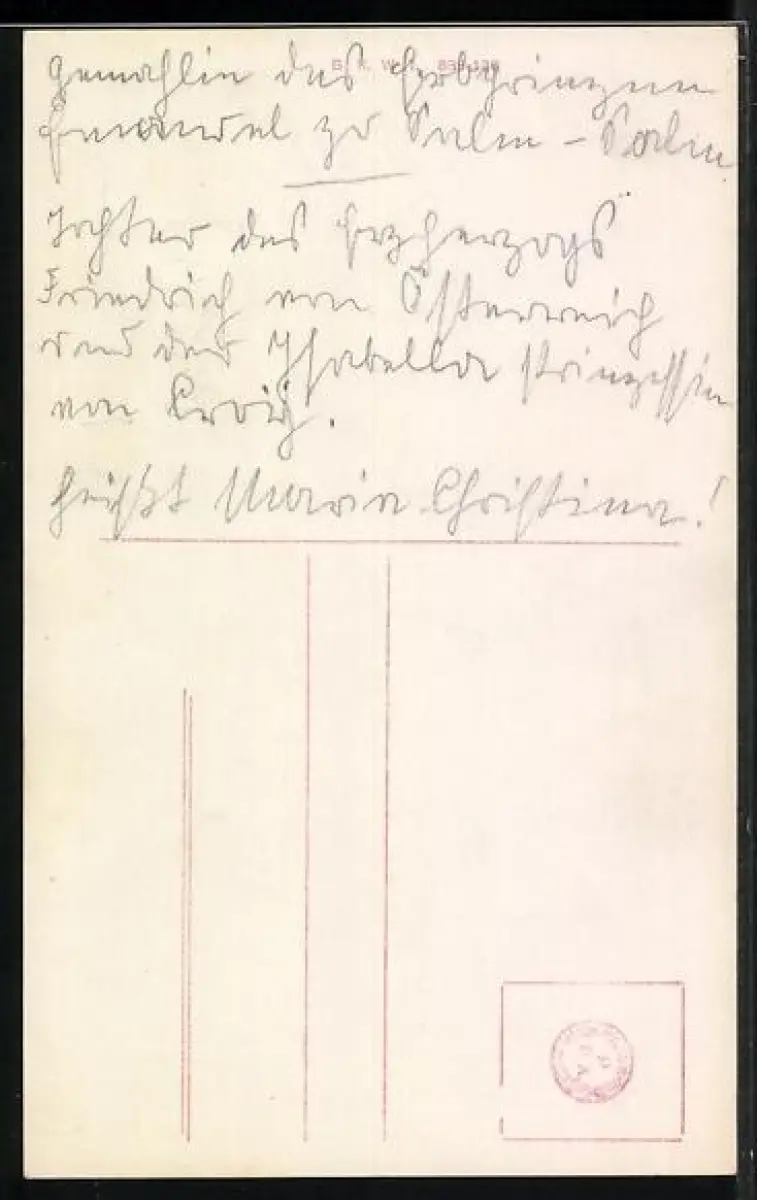 Gemahlin des Erbprinzen
Emanuel zu Salm-Salm
Tochter des Erzherzogs
Friedrich von Österreich
und der Isabella Prinzessin
von Croÿ.
heißt Maria Christina!